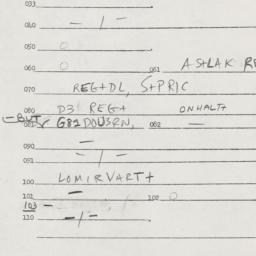 033
040 - / -
050 0
060 0 061 A S+LAK RE
070 REG+DL, S+PRIC
080 D3 REG+ ONHALT+
-BUT 081 G81DOU3RN, 082 -
090 -
091 - / -
100 LOMIRVART+
101 - 100 0
103 -
110 - / -